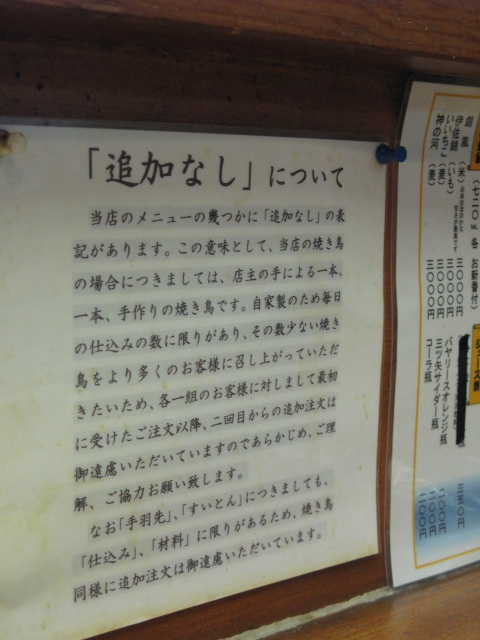 「追加なし」について
当店のメニューの幾つかに「追加なし」の表
記があります。この意味として、当店の焼き鳥
の場合につきましては、店主の手による一本、
一本、手作りの焼き鳥です。自家製のため毎日
の仕込みの数に限りがあり、その数少ない焼き
鳥をより多くのお客様に召し上がっていただ
きたいため、各一組のお客様に対しまして最初
に受けたご注文以降、二回目からの追加注文は
御遠慮いただいていますのであらかじめ、ご理
解、ご協力お願い致します。
なお「手羽先」、「すいとん」につきましても、
「仕込み」、「材料」に限りがあるため、焼き鳥
同様に追加注文は御遠慮いただいています。
(七二〇ML 各 お新香付)
銀風(米)
三〇〇〇円
伊佐錦(いも)
三〇〇〇円
いいちこ(麦)
三〇〇〇円
神の河(麦)
三〇〇〇円
バヤリースオレンジ瓶
二〇〇円
三ツ矢サイダー瓶
二〇〇円
コーラ瓶
二〇〇円